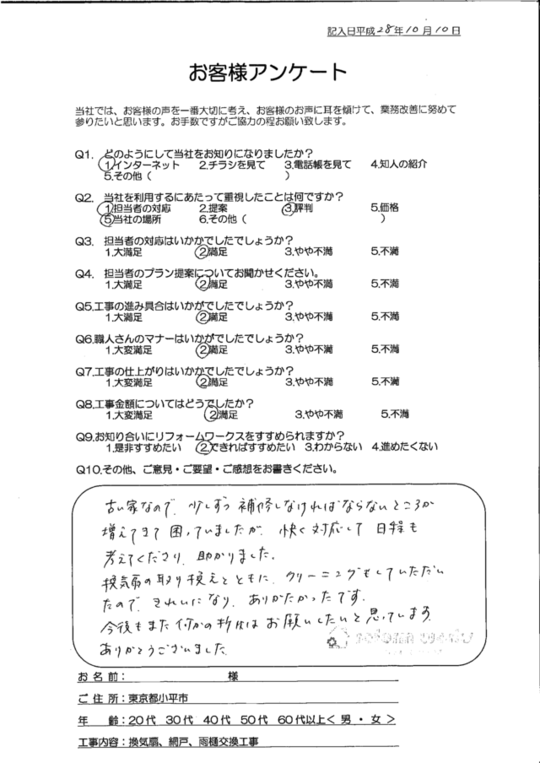 記入日平成28年10月10日
お客様アンケート
当社では、お客様の声を一番大切に考え、お客様のお声に耳を傾けて、業務改善に努めて
参りたいと思います。お手数ですがご協力の程お願い致します。
Q1. どのようにして当社をお知りになりましたか?
1.インターネット 2.チラシを見て 3.電話帳を見て 4.知人の紹介
5.その他 ( )
Q2. 当社を利用するにあたって重視したことは何ですか?
1.担当者の対応 2.提案 3.評判 5.価格
5.当社の場所 6.その他 ( )
Q3. 担当者の対応はいかかでしたでしょうか?
1.大満足 2.満足 3.やや不満 5.不満
Q4. 担当者のプラン提案についてお聞かせください。
1.大満足 2.満足 3.やや不満 5.不満
Q5.工事の進み具合はいかがでしたでしょうか?
1.大満足 2.満足 3.やや不満 5.不満
Q6.職人さんのマナーはいかがでしたでしょうか?
1.大変満足 2.満足 3.やや不満 5.不満
Q7.工事の仕上がりはいかがでしたでしょうか?
1.大変満足 2.満足 3.やや不満 5.不満
Q8.工事金額についてはどうでしたか?
1.大変満足 2.満足 3.やや不満 5.不満
Q9.お知り合いにリフォームワークスをすすめられますか?
1.是非すすめたい 2.できればすすめたい 3.わからない 4.進めたくない
Q10.その他、ご意見・ご要望・ご感想をお書きください。
古い家なので、少しずつ補修しなければならないところが
増えてきて困っていましたが、快く対応して日程も
考えてくださり、助かりました。
換気扇の取り換えとともに、クリーニングもしていただい
たので、きれいになり、ありがたかったです。
今後もまた何かの折にはお願いしたいと思っています。
ありがとうございました
お名前: 様
ご住所:東京都小平市
年 齢:20代 30代 40代 50代 60代以上< 男・女 >
工事内容:換気扇、網戸、雨樋交換工事